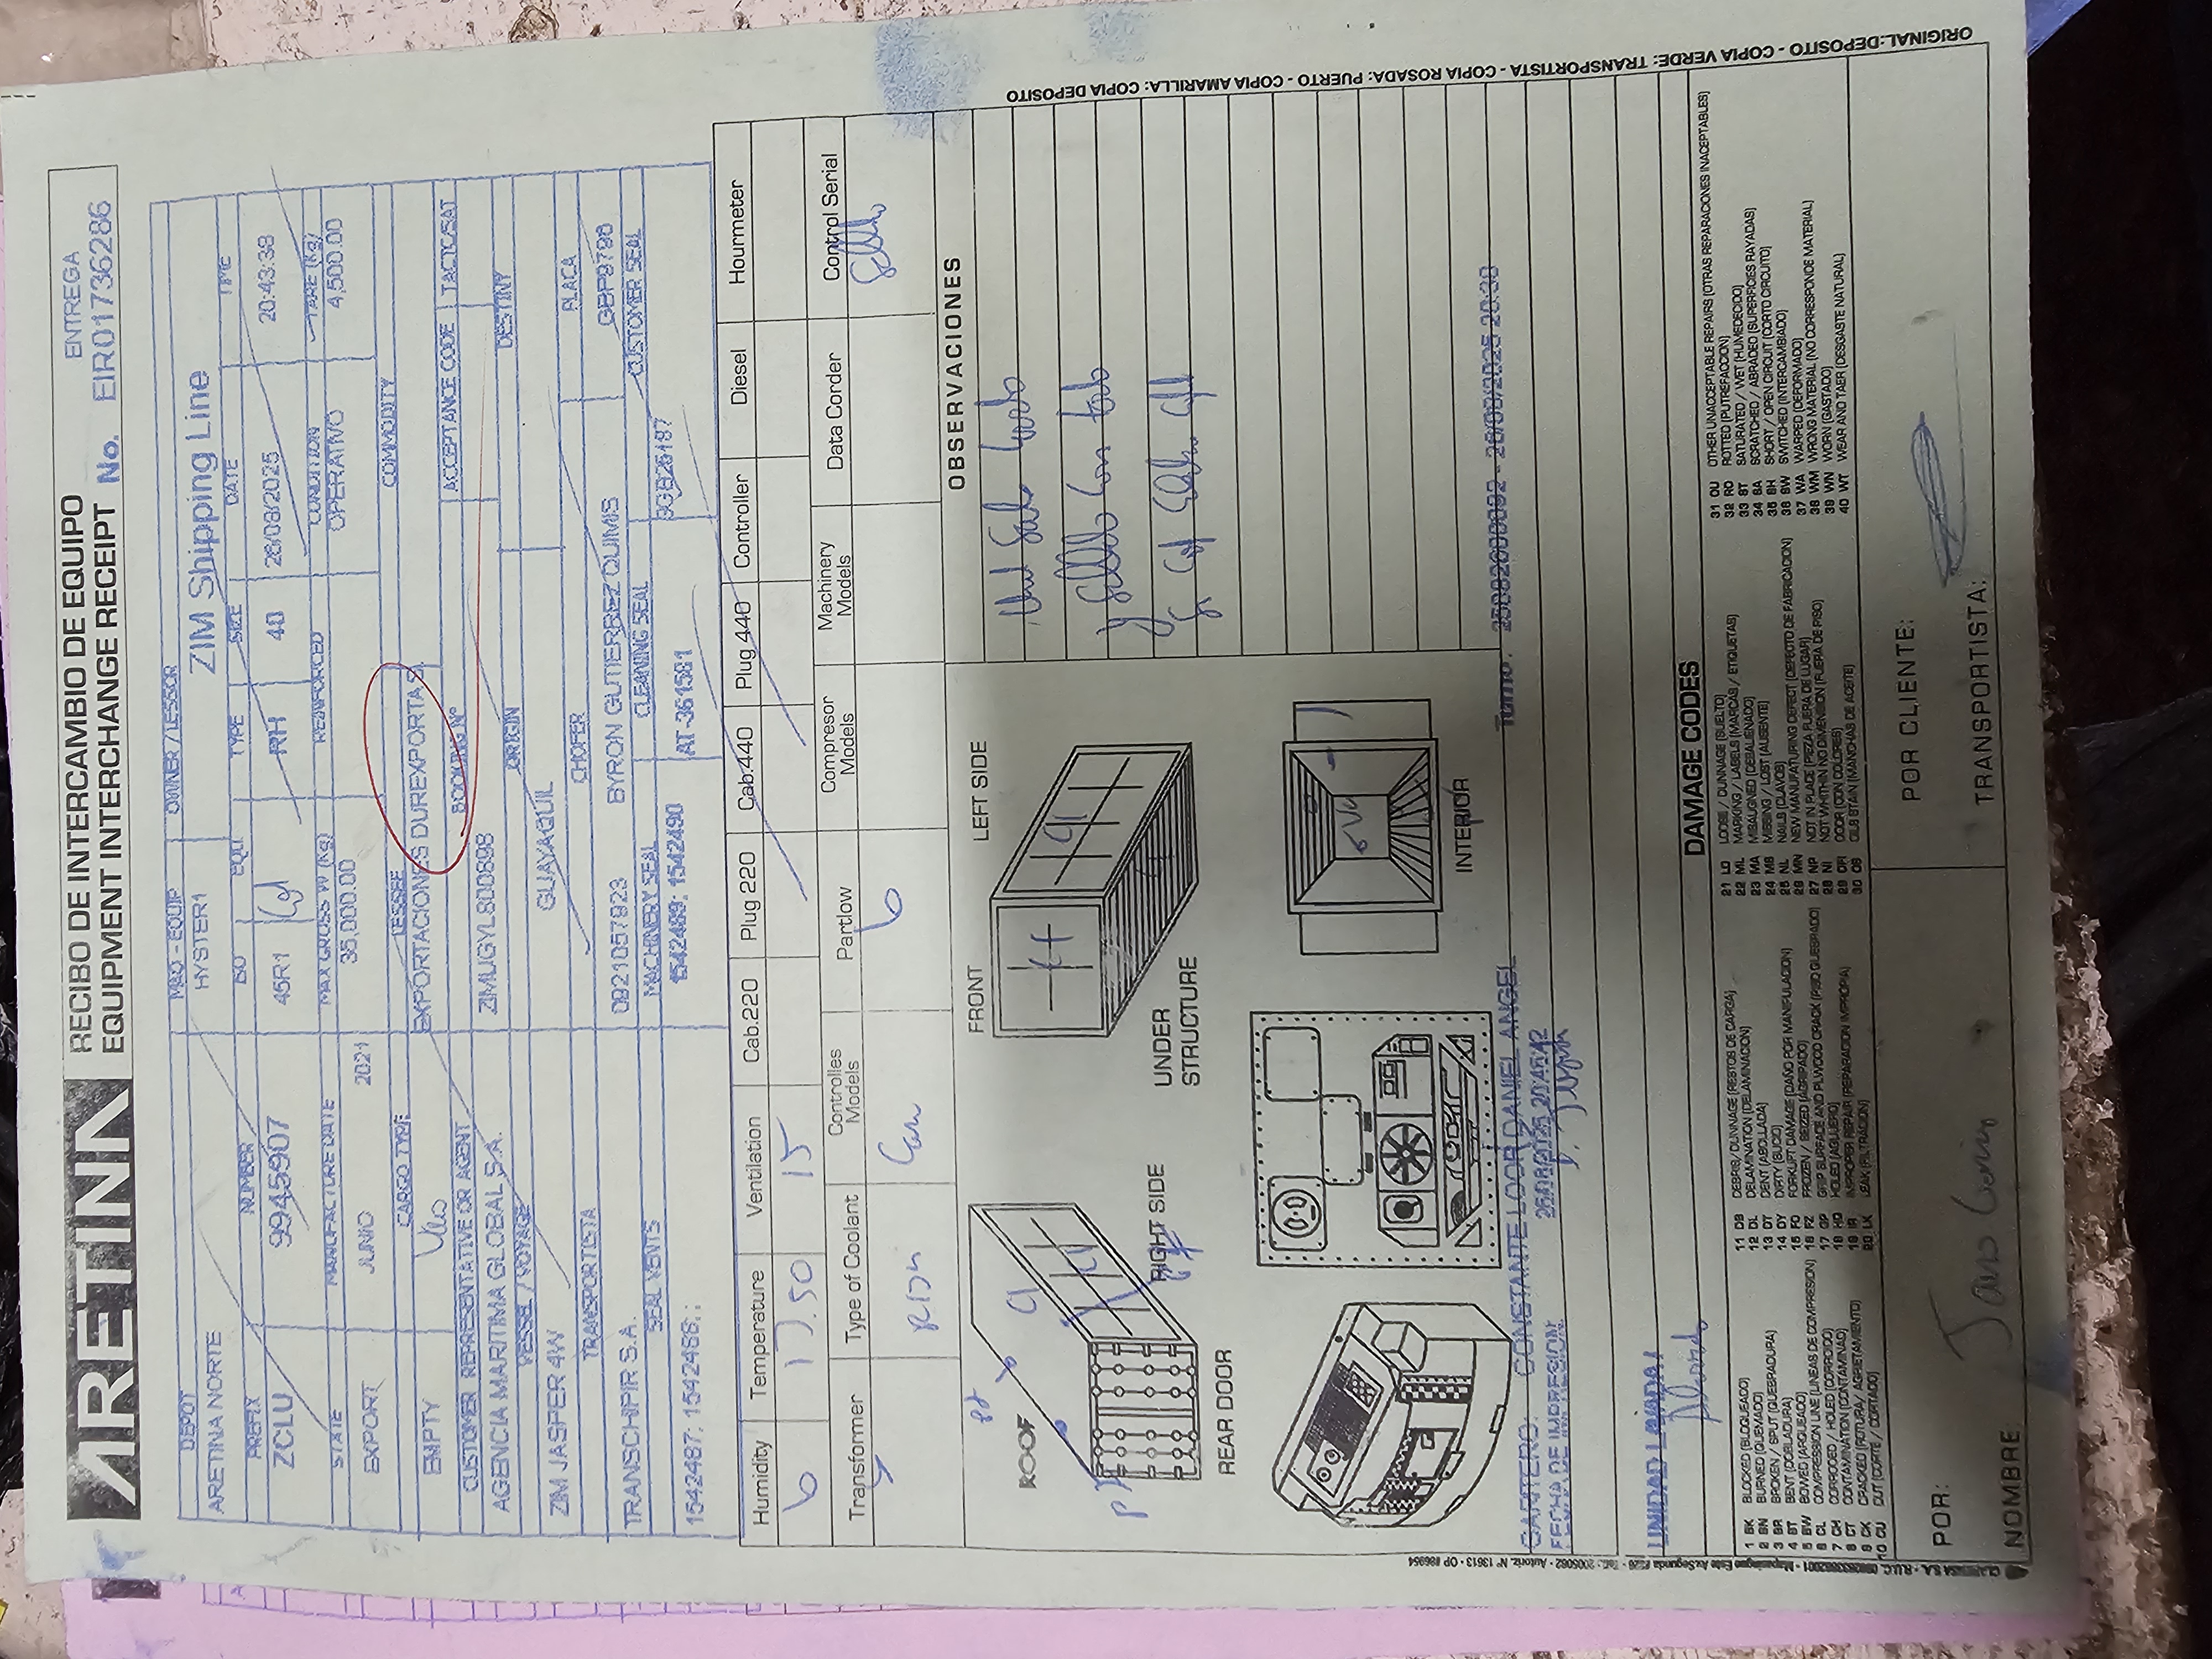 ARETINA
RECIBO DE INTERCAMBIO DE EQUIPO
EQUIPMENT INTERCHANGE RECEIPT
ENTREGA
No. EIR01736286
DEPOT MAQ - EQUIP OWNER / LESSOR
ARETINA NORTE HYSTER1 ZIM Shipping Line
PREFIX NUMBER ISO EQU. TYPE SIZE DATE TIME
ZCLU 9945907 45R1 RH 40 26/08/2025 20:43:38
STATE MANUFACTURE DATE MAX GROSS W (Kg) REINFORCED CONDITION TARE (Kg)
EXPORT JUNIO 2021 35,000.00 OPERATIVO 4,500.00
CARGO TYPE LESSEE COMMODITY
EMPTY EXPORTACIONES DUREXPORTA S.
CUSTOMER REPRESENTATIVE OR AGENT BOOKING Nº ACCEPTANCE CODE TACTC/SAT
AGENCIA MARITIMA GLOBAL S.A. ZIMUGYL800898
VESSEL / VOYAGE ORIGIN DESTINY
ZIM JASPER 4W GUAYAQUIL
TRANSPORTISTA CHOFER PLACA
TRANSCHIPIR S.A. 0921057923 BYRON GUTIERREZ QUIMIS GBP9796
SEAL VENTS MACHINERY SEAL CLEANING SEAL CUSTOMER SEAL
1542487; 1542488; ; 1542489; 1542490 AT-361581 9GB26187
Humidity Temperature Ventilation Cab.220 Plug 220 Cab.440 Plug 440 Controller Diesel Hourmeter
6 13.50 15
Transformer Type of Coolant Controlles Models Partlow Compresor Models Machinery Models Data Corder Control Serial
6
OBSERVACIONES
ROOF
RIGHT SIDE
REAR DOOR
FRONT
LEFT SIDE
UNDER STRUCTURE
INTERIOR
GARITERO: CONSTANTE LOOR DANIEL ANGEL
Turno: 25082600092 - 26/08/2025 20:30
FECHA DE IMPRESION: 26/08/2025 20:45:42
UNIDAD LAVADA /
DAMAGE CODES
1 BK BLOCKED (BLOQUEADO)
2 BN BURNED (QUEMADO)
3 BR BROKEN / SPUT (QUEBRADURA)
4 BT BENT (DOBLADURA)
5 BW BOWED (ARQUEADO)
6 CL COMPRESSION LINE (LINEAS DE COMPRESION)
7 CH CORRODED / HOLED (CORROIDO)
8 CT CONTAMINATION (CONTAMINAD)
9 CK CRACKED (ROTURA/ AGRIETAMIENTO)
10 CU CUT (CORTE / CORTADO)
11 DB DEBRIS/DUNNAGE (RESTOS DE CARGA)
12 DL DELAMINATION (DELAMINACION)
13 DT DENT (ABOLLADA)
14 DY DIRTY (SUCIO)
15 FO FORKLIFT DAMAGE (DAÑO POR MANIPULACION)
16 FZ FROZEN / SEIZED (AGRIPADO)
17 GP GRIP SURFACE AND PLWOOD CRACK (PISO QUEBRADO)
18 HO HOLED (AGUJERO)
19 IR IMPROPER REPAIR (REPARACION IMPROPIA)
20 LK LEAK (FILTRACION)
21 LO LOOSE / DUNNAGE (SUELTO)
22 ML MARKING / LABELS (MARCAS / ETIQUETAS)
23 MA MISALIGNED (DESALIENADO)
24 MS MISSING / LOST (AUSENTE)
25 NL NAILS (CLAVOS)
26 MN NEW MANUFACTURING DEFECT (DEFECTO DE FABRICACION)
27 NP NOT IN PLACE (PIEZA FUERA DE LUGAR)
28 NI NOT WHITHIN NO DIMENSION (FUERA DE PISO)
29 ODOR (CON OLORES)
30 OS OILS STAIN (MANCHAS DE ACEITE)
31 OU OTHER UNACCEPTABLE REPAIRS (OTRAS REPARACIONES INACEPTABLES)
32 RO ROTTED (PUTREFACCION)
33 ST SATURATED / WET (HUMEDECIDO)
34 SA SCRATCHED / ABRADED (SUPERFICIES RAYADAS)
35 SH SHORT / OPEN CIRCUIT (CORTO CIRCUITO)
36 SW SWITCHED (INTERCAMBIADO)
37 WA WARPED (DEFORMADO)
38 WM WRONG MATERIAL (NO CORRESPONDE MATERIAL)
39 WN WORN (GASTADO)
40 WT WEAR AND TAER (DESGASTE NATURAL)
POR:
NOMBRE
POR CLIENTE:
TRANSPORTISTA:
ORIGINAL:DEPOSITO - COPIA VERDE: TRANSPORTISTA - COPIA ROSADA: PUERTO - COPIA AMARILLA: COPIA DEPOSITO